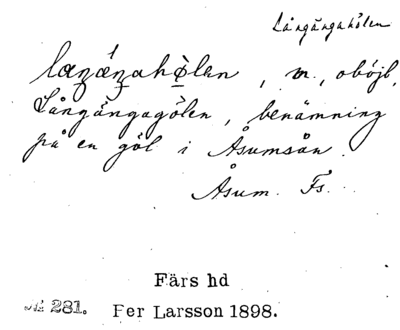 Långångahölen
laŋáŋahø̀lan, m., oböjl.
Långångagölen, benämning
på en göl i Åsumsån.
Åsum. Fs.
Färs hd
281. Per Larsson 1898.